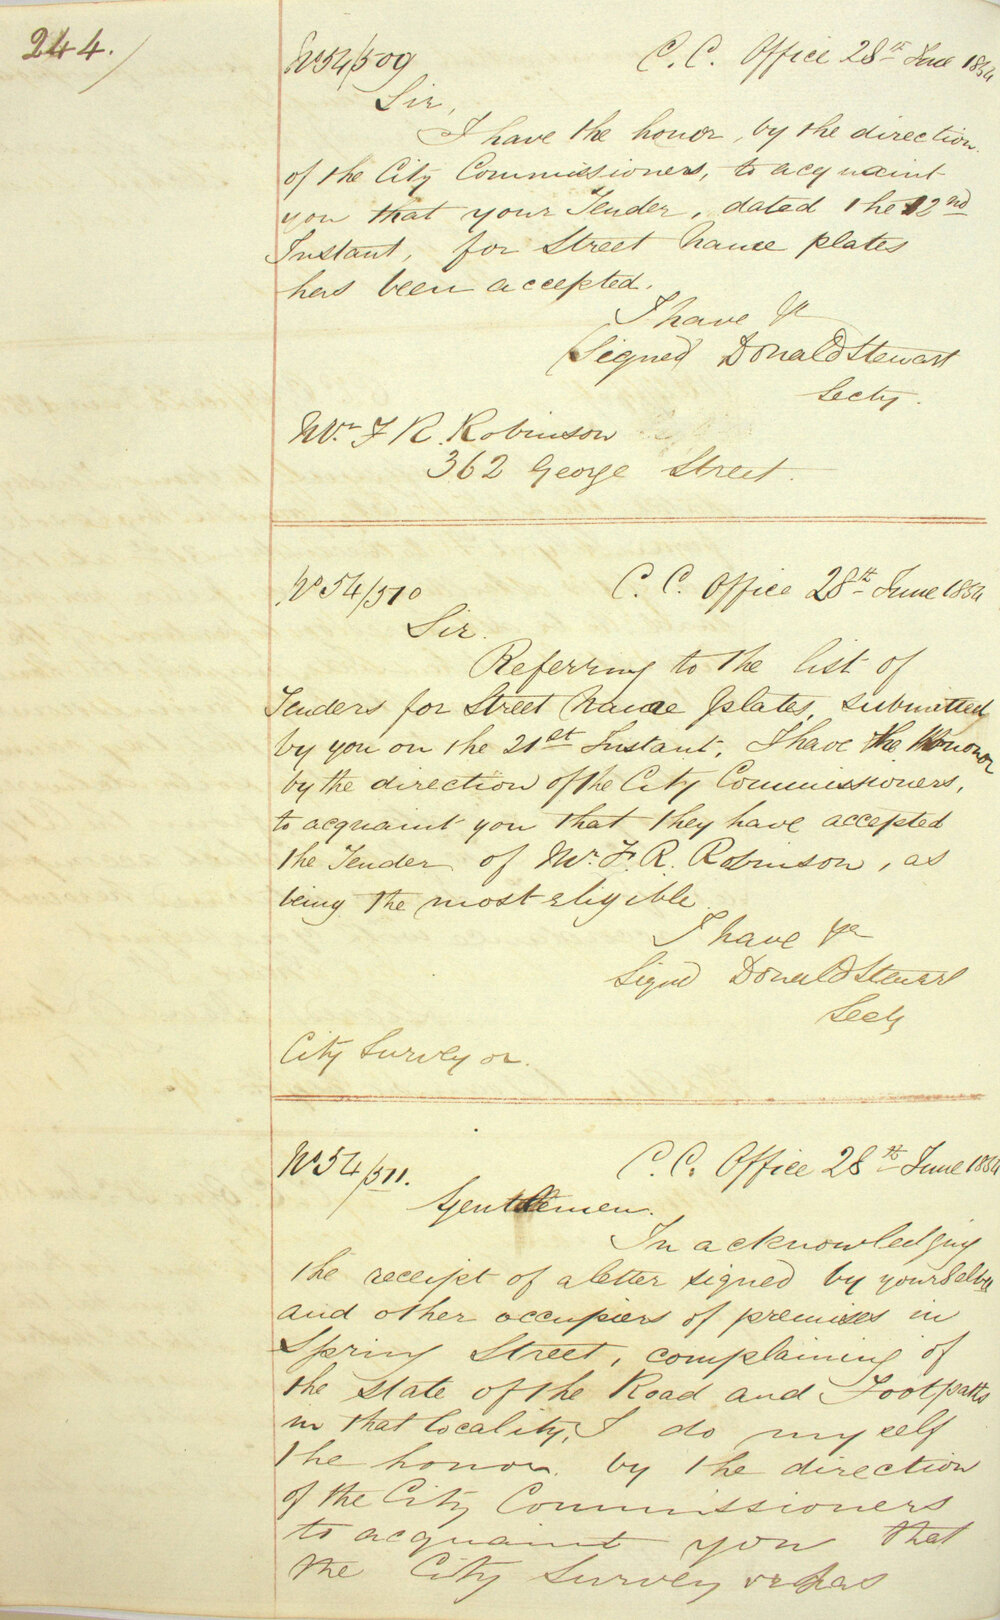 244.
No 54/509
C. C. Office 28th June 1854
Sir,
I have the honor, by the direction
of the City Commissioners, to acquaint
you that your Tender, dated the 12nd
Instant, for Street Name plates
has been accepted.
I have &c
Signed Donald Stewart
Secty.
Mr. F R. Robinson
362 George Street.
No 54/510
C. C. Office 28th June 1854
Sir.
Referring to the list of
Tenders for Street Name plates, submitted
by you on the 21st Instant, I have the Honor
by the direction of the City Commissioners,
to acquaint you that they have accepted
the Tender of Mr. F. R. Robinson, as
being the most eligible
I have &c
Signd Donald Stewart
Secty
City Surveyor.
No 54/511.
C. C. Office 28th June 1854
Gentlemen.
In acknowledging
the receipt of a letter signed by yourselves
and other occupiers of premises in
Spring Street, complaining of
the state of the Road and Footpaths
in that locality, I do myself
the honor by the direction
of the City Commissioners
to acquaint you that
the City Surveyor has